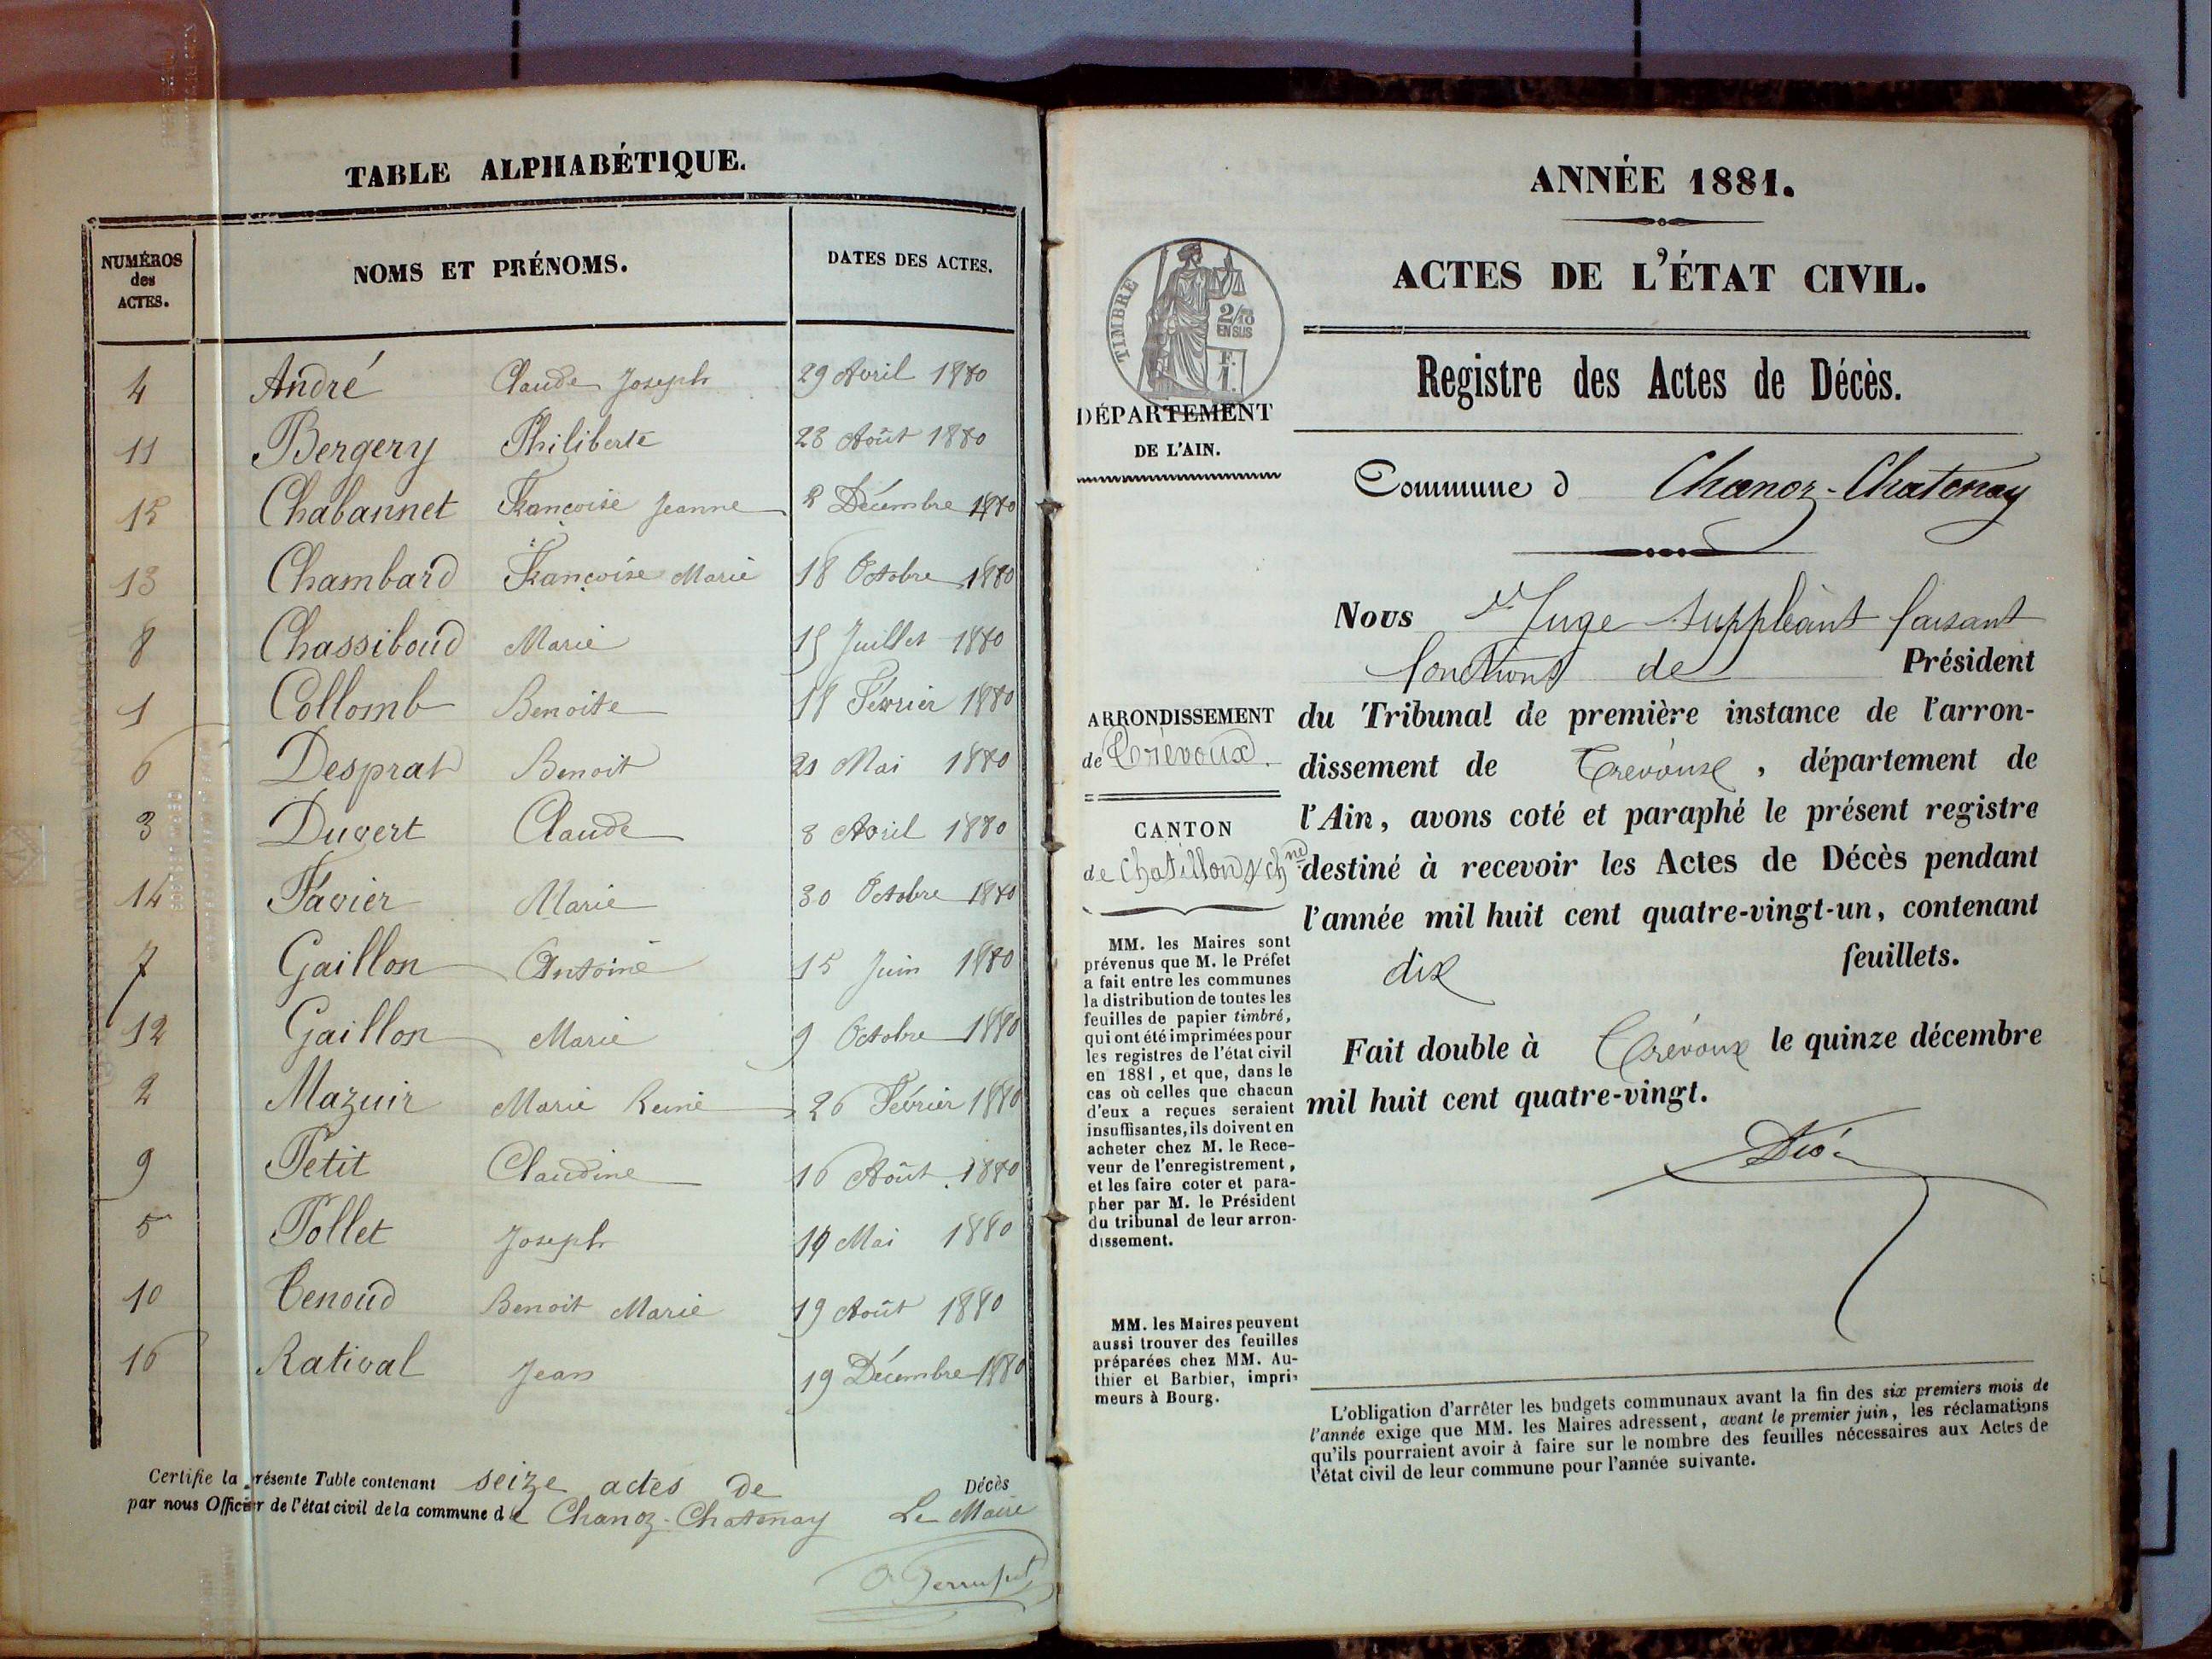 TABLE ALPHABÉTIQUE.
NUMÉROS des ACTES.
NOMS ET PRÉNOMS.
DATES DES ACTES.
4 André Claude Joseph 29 Avril 1880
11 Bergery Philiberte 28 Août 1880
15 Chabannet Françoise Jeanne 8 Décembre 1880
13 Chambard Françoise Marie 18 Octobre 1880
8 Chassiboud Marie 15 Juillet 1880
1 Collomb Benoite 18 Février 1880
6 Desprat Benoit 21 Mai 1880
3 Duvert Claude 8 Avril 1880
14 Favier Marie 30 Octobre 1880
7 Gaillon Antoine 15 Juin 1880
12 Gaillon Marie 9 Octobre 1880
2 Mazuir Marie Reine 26 Février 1880
9 Petit Claudine 16 Août 1880
5 Pollet Joseph Mai 1880
10 Tenoud Benoit Marie 19 Août 1880
16 Ratival Jean 19 Décembre 1880
Certifie la présente Table contenant seize actes de Décès
par nous Officier de l'état civil de la commune de Chanoz-Chatenay Le Maire
ANNÉE 1881.
ACTES DE L'ÉTAT CIVIL.
TIMBRE
2/10
EN SUS
F.
1.
Registre des Actes de Décès.
DÉPARTEMENT
DE L'AIN.
Commune d Chanoz-Chatenay
ARRONDISSEMENT
de Trévoux.
CANTON
de Chatillon s/ ch ne
MM. les Maires sont
prévenus que M. le Préfet
a fait entre les communes
la distribution de toutes les
feuilles de papier timbré,
qui ont été imprimées pour
les registres de l'état civil
en 1881, et que, dans le
cas où celles que chacun
d'eux a reçues seraient
insuffisantes, ils doivent en
acheter chez M. le Rece-
veur de l'enregistrement,
et les faire coter et para-
pher par M. le Président
du tribunal de leur arron-
dissement.
MM. les Maires peuvent
aussi trouver des feuilles
préparées chez MM. Au-
thier et Barbier, impri-
meurs à Bourg.
Nous Juge suppléant faisant
fonctions de Président
du Tribunal de première instance de l'arron-
dissement de Trévoux, département de
l'Ain, avons coté et paraphé le présent registre
destiné à recevoir les Actes de Décès pendant
l'année mil huit cent quatre-vingt-un, contenant
dix feuillets.
Fait double à Trévoux le quinze décembre
mil huit cent quatre-vingt.
L'obligation d'arrêter les budgets communaux avant la fin des six premiers mois de
l'année exige que MM. les Maires adressent, avant le premier juin, les réclamations
qu'ils pourraient avoir à faire sur le nombre des feuilles nécessaires aux Actes de
l'état civil de leur commune pour l'année suivante.